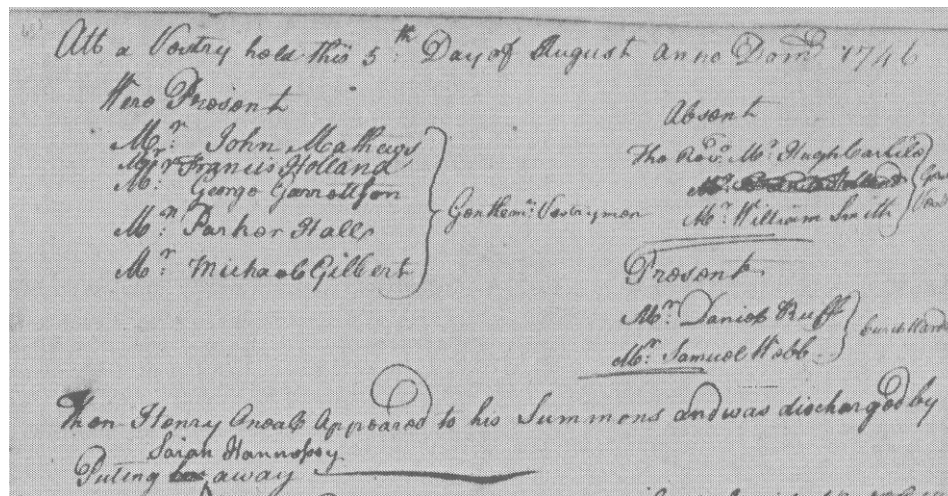 Att a Vestry held this 5th Day of August anno Dom 1746
Were Present
Mr. John Mathews
Mr Francis Holland
Mr. George Garrettson
Mr. Parker Hall
Mr. Michael Gilbert
Gentlemn. Vestrymen
Absent
The Revd. Mr. Hugh Carlile
Mr. William Smith
Present
Mr. Daniel Ruff
Mr. Samuel Webb
Then Henry Appeared to his Summons and was discharged by
Sarah
Puting away